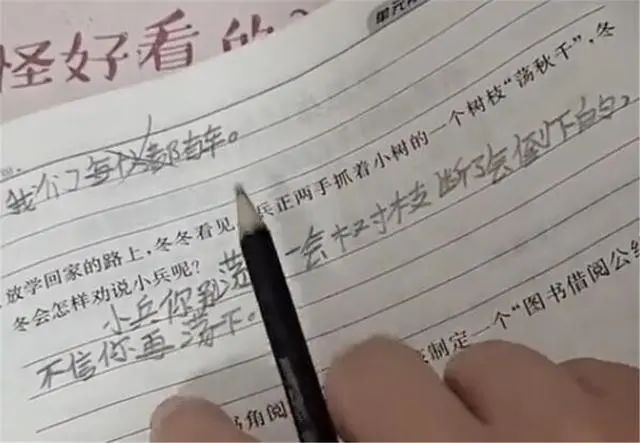 怪好看的?
单元
我们每都有车。
放学回家的路上,冬冬看见 兵正两手抓着小树的一个树枝“荡秋千”,冬
冬会怎样劝说小兵呢?
小兵你别荡 一会树枝断了会倒下
不信你再荡下。
制定一个“图书借阅公约
角阅